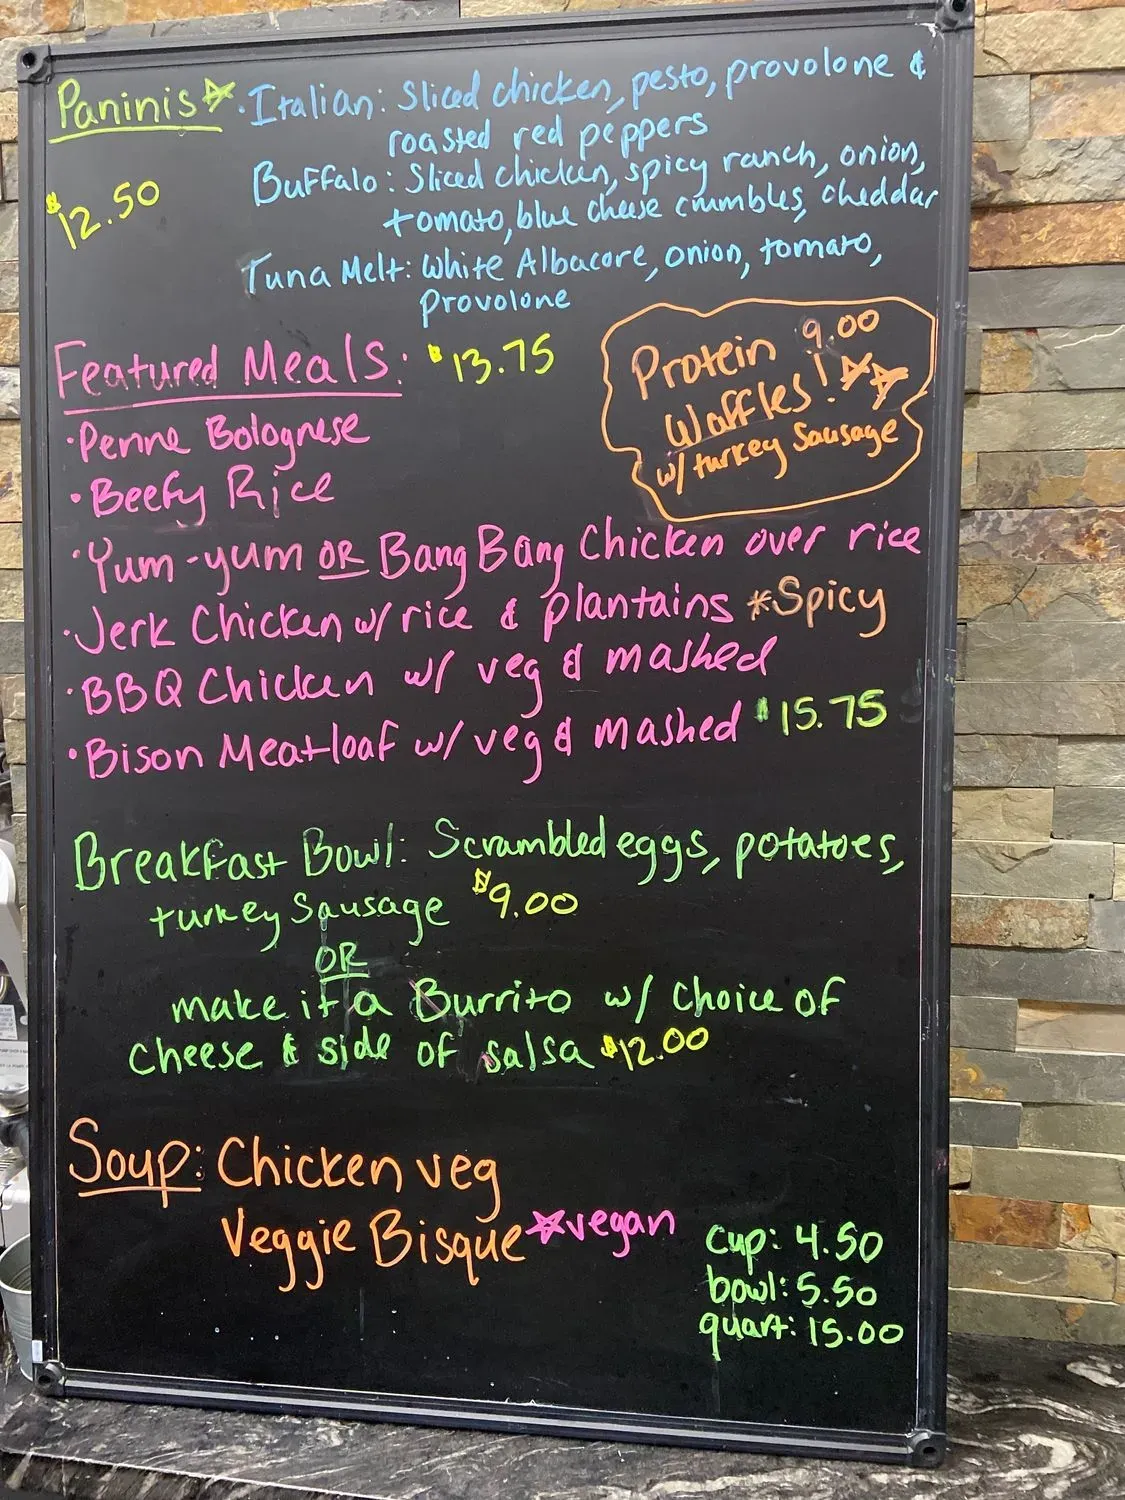 Paninis
$12.50
· Italian: Sliced chicken, pesto, provolone &
roasted red peppers
Buffalo: Sliced chicken, spicy ranch, onion,
tomato, blue cheese crumbles, cheddar
Tuna Melt: White Albacore, onion, tomato,
Provolone
Protein 9.00
Waffles!
w/ turkey Sausage
Featured Meals: $13.75
· Penne Bolognese
· Beefy Rice
· Yum-yum OR Bang Bang Chicken over rice
· Jerk Chicken w/ rice & plantains *Spicy
· BBQ Chicken w/ veg & mashed
· Bison Meatloaf w/ veg & mashed $15.75
Breakfast Bowl: Scrambled eggs, potatoes,
turkey Sausage $9.00
OR
make it a Burrito w/ Choice of
Cheese & side of salsa $12.00
Soup: Chicken veg
Veggie Bisque ☆vegan
cup: 4.50
bowl: 5.50
quart: 15.00